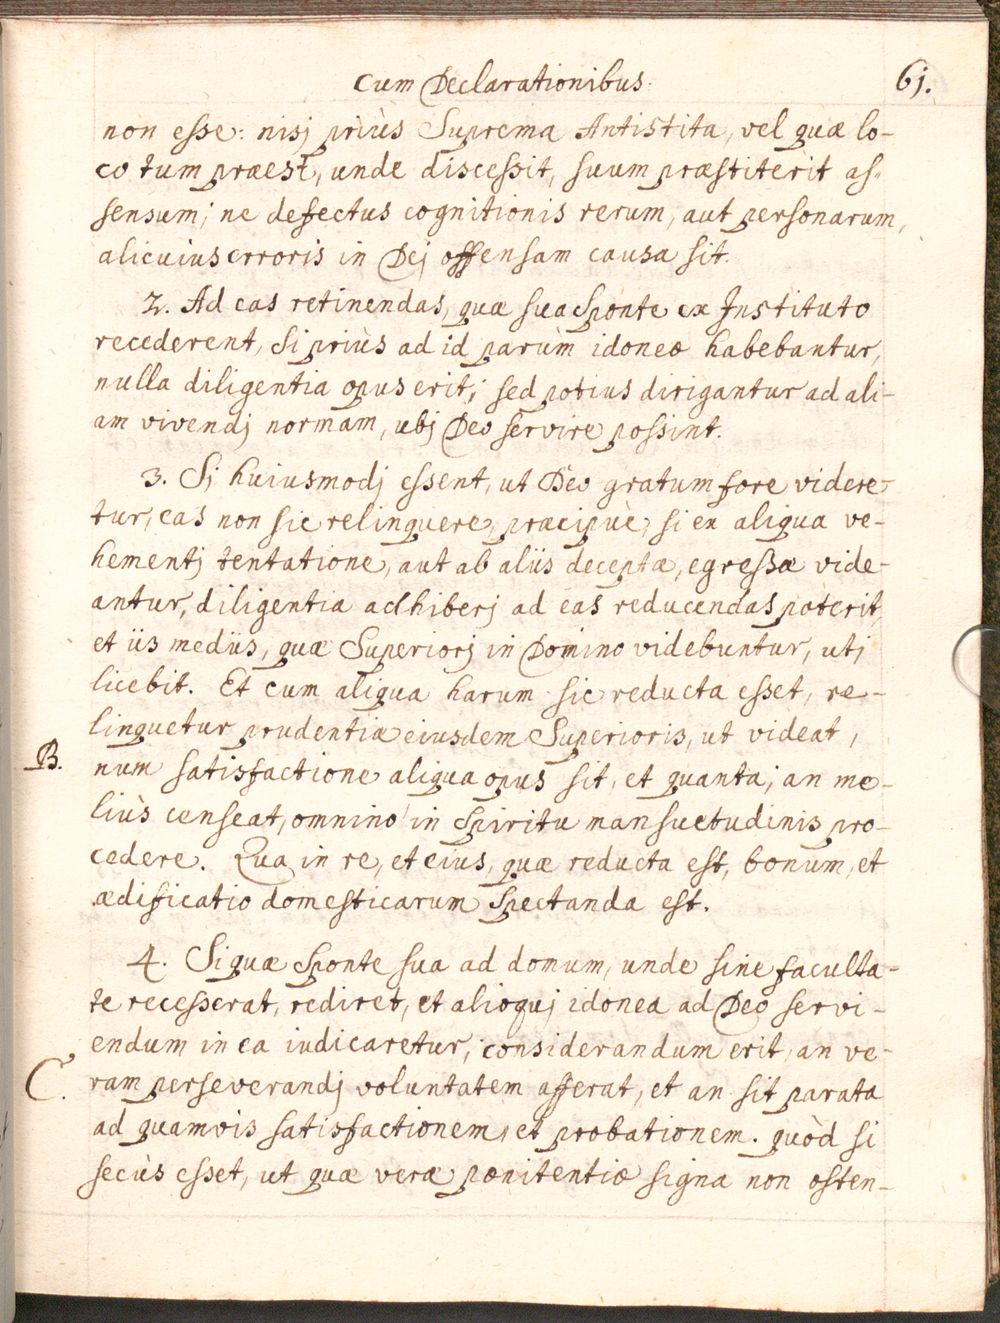 Cum Declarationibus. 61.
non esse: nisj priùs Suprema Antistita, vel quæ lo-
co tum præest, unde discessit, suum præstiterit as-
sensum; ne defectus cognitionis rerum, aut personarum,
alicuius erroris in Dej offensam causa sit.
2. Ad eas retinendas, quæ sua sponte ex Instituto
recederent, si priùs ad id parùm idoneæ habebantur,
nulla diligentia opus erit; sed potius dirigantur ad ali-
am vivendj normam, ubj Deo servire possint.
3. Sj huiusmodj essent, ut Deo gratum fore videre-
tur, eas non sic relinquere, præcipuè, si ex aliqua ve-
hementj tentatione, aut ab aliis deceptæ, egressæ vide-
antur, diligentia adhiberj ad eas reducendas poterit,
et iis mediis, quæ Superiorj in Domino videbuntur, utj
licebit. Et cum aliqua harum sic reducta esset, re-
linquetur prudentiæ eiusdem Superioris, ut videat,
B.
num satisfactione aliqua opus sit, et quanta; an me-
liùs censeat, omnino in Spiritu mansuetudinis pro-
cedere. Qua in re, et eius, quæ reducta est, bonum, et
ædificatio domesticarum spectanda est.
4. Si quæ sponte sua ad domum, unde sine faculta-
te recesserat, rediret, et alioquj idonea ad Deo servi-
endum in ea iudicaretur; considerandum erit, an ve-
C.
ram perseverandj voluntatem afferat, et an sit parata
ad quamvis satisfactionem, et probationem. quòd si
secùs esset, ut quæ veræ pœnitentiæ signa non osten-